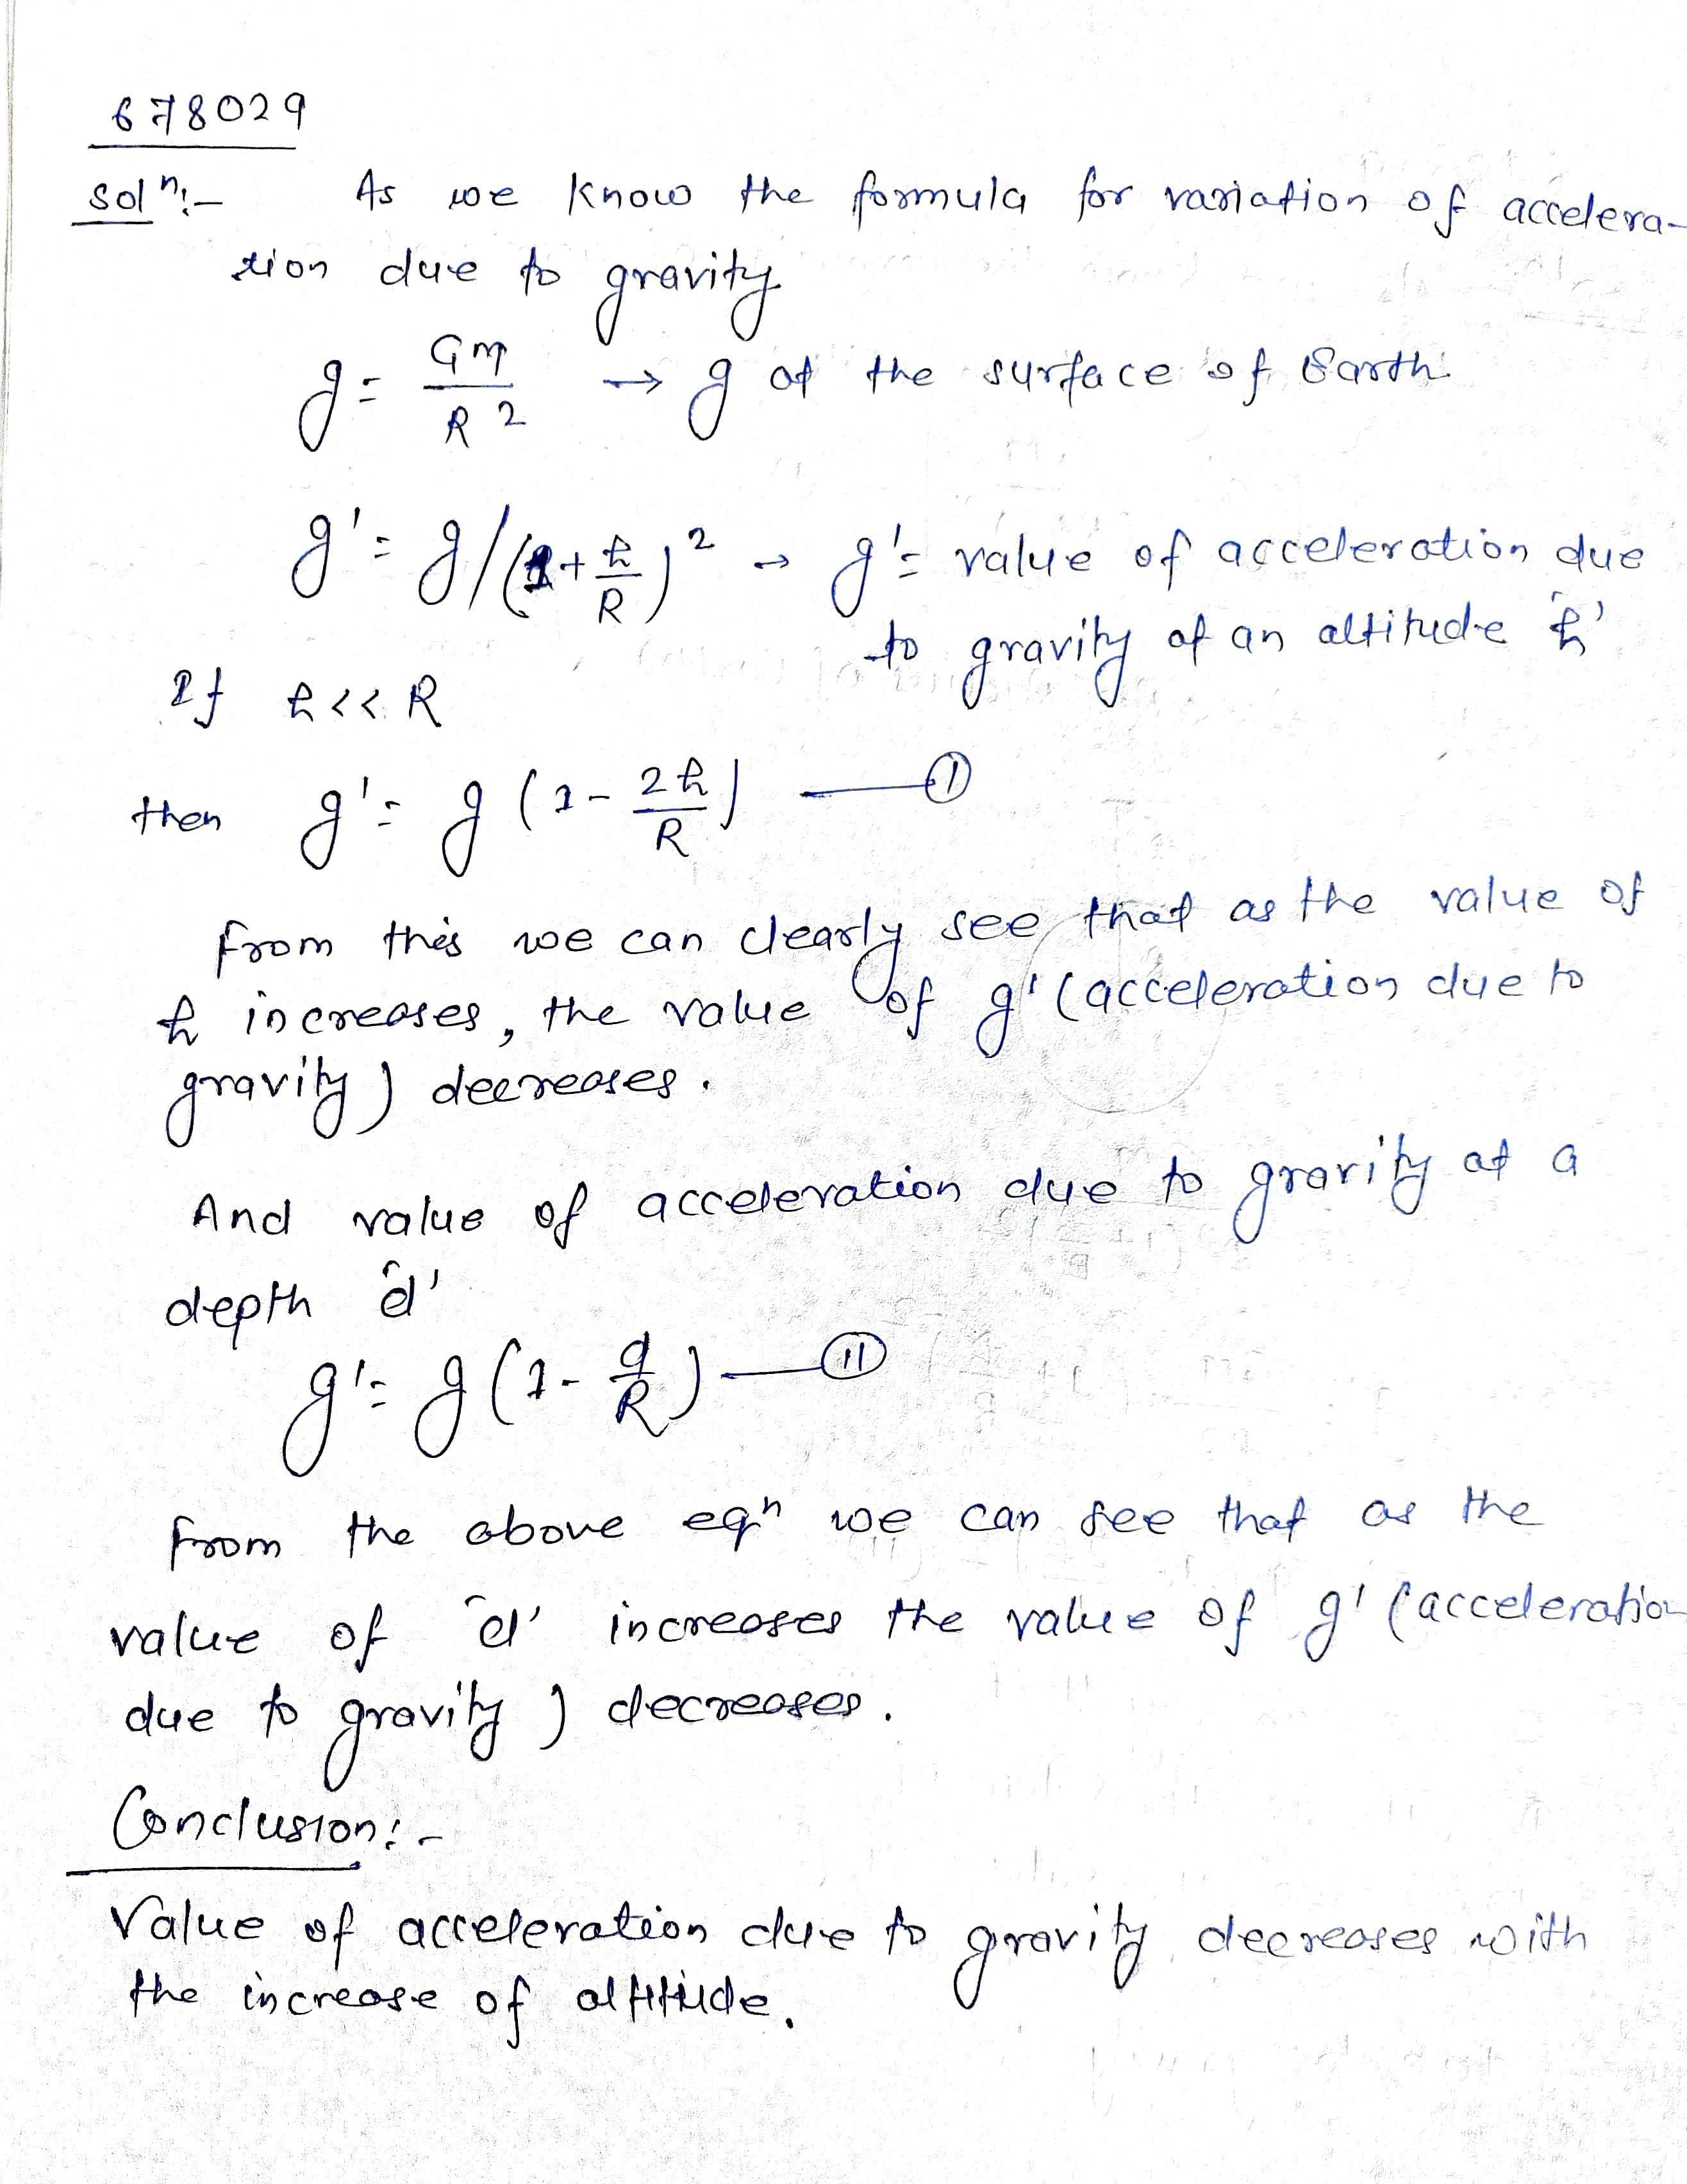 678029
Solⁿ:- As we know the formula for variation of accelera-
tion due to gravity
g = GM/R² → g at the surface of Earth
g' = g/(1+h/R)² → g' = value of acceleration due
to gravity at an altitude 'h'
If h << R
then g' = g (1 - 2h/R) — (I)
from this we can clearly see that as the value of
h increases, the value of g' (acceleration due to
gravity) decreases.
And value of acceleration due to gravity at a
depth 'd'
g' = g (1 - d/R) — (II)
from the above eqⁿ we can see that as the
value of 'd' increases the value of g' (acceleration
due to gravity) decreases.
Conclusion:-
Value of acceleration due to gravity decreases with
the increase of altitude.